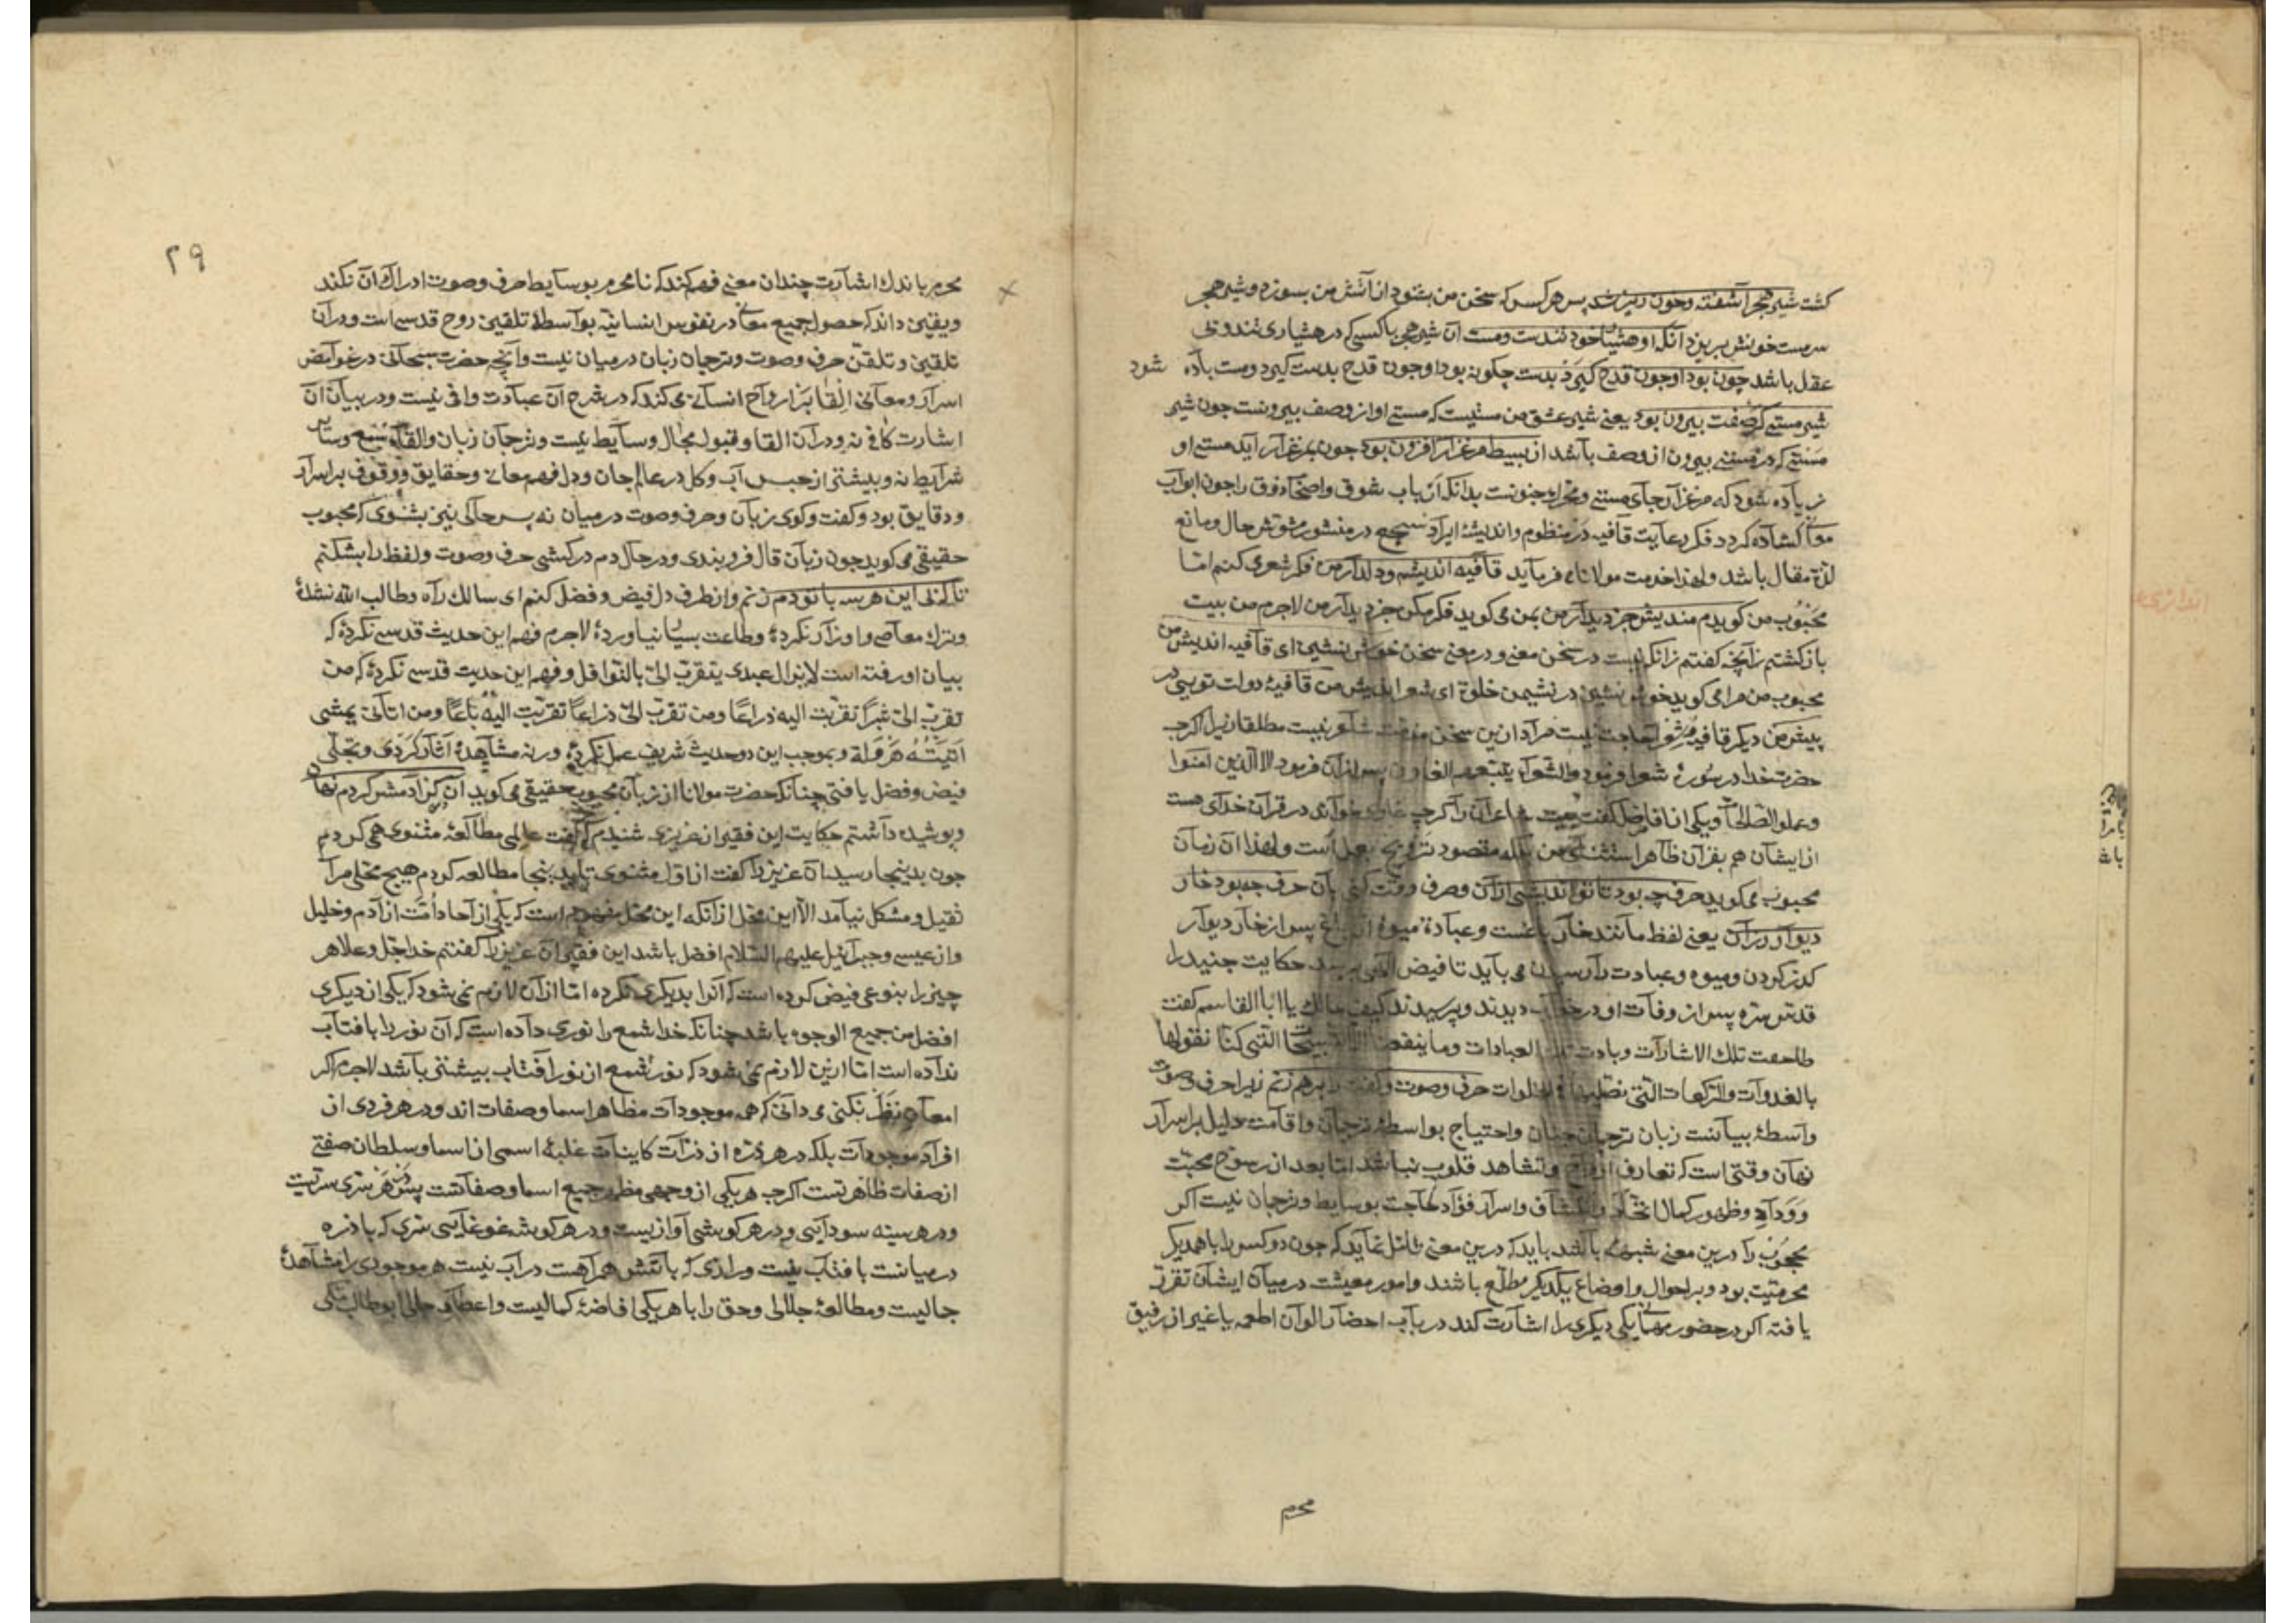 کشت شیر هجر آشفته وخون ریز شد پس هر کس که سخن من بشنود از آتش من بسوزد وشیر هجر
سرمست خونش بریزد آنکه او هشیار خود تندست ومست آن شیر هجر باکسی که در هشیاری تند وبی
عقل باشد چون بود او چون قدح کیرد بدست چکونه بود او چون قدح بدست کیرد ومست باده شود
شیر مستی کز صفت بیرون بود یعنی شیر عشق من مستیست که مستی او از وصف بیرونست چون شیر
مستی که در مستی بیرون از وصف باشد از بسیط مرغزار افزون بود چون بمرغزار آید مستی او
زیاده شود که مرغزار جای مستی ومحرک جنونست بدانکه ارباب شوق واصحاب ذوق را چون ابواب
معانی کشاده کردد فکر رعایت قافیه در منظوم واندیشهٔ ایراد سجع در منثور مشوش حال ومانع
لذة مقال باشد ولهذا خدمت مولانا می فرماید قافیه اندیشم ودلدار من فکر شعری کنم اما
محبوب من کویدم مندیش جز دیدار من بمن می کوید فکر مکن جز دیدار من لاجرم من بیت
باز کشتم زانچه کفتم زانکه نیست در سخن معنی ودر معنی سخن خوش بنشین ای قافیه اندیش من
محبوب من مرا می کوید خوش بنشین در نشیمن خلوة ای شعر اندیش من قافیهٔ دولت تویی در
پیش من دیکر قافیهٔ شعر را حاجت نیست مراد ازین سخن مذمت شاعر نیست مطلقا زیرا کرچه
حضرت خدا در سورهٔ شعرا فرمود والشعراء یتبعهم الغاوون پس از آن فرمود الا الذین امنوا
وعملوا الصالحات ویکی از افاضل کفت بیت شاعران را کرچه غاوی خواند در قرآن خدای هست
از ایشان هم بقرآن ظاهر استثنای من بلکه مقصود ترویج عمل است ولهذا آن زمان
محبوب می کوید حرف چه بود تا تو اندیشی از آن وصرف وقت کنی بآن حرف چه بود خار
دیوار رزان یعنی لفظ مانند خار باغست وعبادة میوهٔ آن باغ پس از خار دیوار
کذر کردن ومیوه وعبادت را رسیدن می باید تا فیض الهی برسد حکایت جنید را
قدس سره پس از وفات او در خواب دیدند وپرسیدند کیف حالک یا ابا القاسم کفت
طاحت تلک الاشارات وبادت تلک العبادات وما ینفعنا الا التسبیحات التی کنا نقولها
بالغدوات والرکعات التی نصلیها فی الخلوات حرف وصوت وکفت را برهم زنم زیرا حرف وصوت
واسطهٔ بیانست زبان ترجمان جنان واحتیاج بواسطهٔ ترجمان واقامت دلیل بر اسرار
نهان وقتی است که تعارف ارواح وتشاهد قلوب نباشد اما بعد از رسوخ محبت
ووداد وظهور کمال اتحاد وانکشاف واسرار فؤاد حاجت بوسایط وترجمان نیست اکر
محجوب را درین معنی شبهه باشد باید که درین معنی تامل نماید که چون دو کس را با همدیکر
محرمیت بود وبر احوال واوضاع یکدیکر مطلع باشند وامور معیشت در میان ایشان تقرر
یافته اکر در حضور مهمانی یکی دیکری را اشارت کند در باب احضار الوان اطعمه یا غیر آن رفیق
محرم
۲۹
محرم باندک اشارت چندان معنی فهم کند که نامحرم بوسایط حرف وصوت ادراک آن نکند
ویقین داند که حصول جمیع معانی در نفوس انسانیه بواسطهٔ تلقین روح قدسی است ودر آن
تلقین وتلقن حرف وصوت وترجمان زبان در میان نیست وآنچه حضرت سبحانی در غوامض
اسرار ومعانی القا بر ارواح انسانی می کند که در شرح آن عبادت وافی نیست ودر بیان آن
اشارت کافی نه ودر آن القا وقبول مجال وسایط نیست وترجمان زبان والقای سمع وسایر
شرایط نه وبیشتر از حبس آب وکل در عالم جان ودل فهم معانی وحقایق ووقوف بر اسرار
ودقایق بود وکفت وکوی زبان وحرف وصوت در میان نه پس حالی نیز بشنوی که محبوب
حقیقی می کوید چون زبان قال فرو بندی ودر حال دم درکشی حرف وصوت ولفظ را بشکنم
تا که بی این هر سه با تو دم زنم واز طرف دل فیض وفضل کنم ای سالک راه وطالب الله نشدهٔ
وترک معاصی واوزار نکردهٔ وطاعت بسیار نیاوردهٔ لاجرم فهم این حدیث قدسی نکردهٔ که
بیان او رفته است لایزال عبدی یتقرب الی بالنوافل وفهم این حدیث قدسی نکردهٔ که من
تقرب الی شبرا تقربت الیه ذراعا ومن تقرب الی ذراعا تقربت الیه باعا ومن اتانی یمشی
اتیته هرولة وبموجب این دو حدیث شریف عمل نکردهٔ ورنه مشاهدهٔ آثار کردی وتجلی
فیض وفضل یافتی چنانکه حضرت مولانا از زبان محبوب حقیقی می کوید آن کز آدمش کردم نهان
وپوشیده داشتم حکایت این فقیر از عزیزی شنیدم که کفت عالمی مطالعهٔ مثنوی همی کردم
چون بدینجا رسید آن عزیز را کفت از اول مثنوی تا بدینجا مطالعه کردم هیچ محلی مرا
ثقیل ومشکل نیامد الا این محل از آنکه این محل مفهوم است که یکی از آحاد امت از آدم وخلیل
واز عیسی وجبرائیل علیهم السلام افضل باشد این فقیر آن عزیز را کفتم خدا جل وعلا هر
چیز را بنوعی فیض کرده است که آنرا بدیکری نکرده اما از آن لازم نمی شود که یکی از دیکری
افضل من جمیع الوجوه باشد چنانکه خدا شمع را نوری داده است که آن نور را بآفتاب
نداده است اما ازین لازم نمی شود که نور شمع از نور آفتاب بیشتر باشد لاجرم اکر
امعان نظر بکنی می دانی که همه موجودات مظاهر اسما وصفات اند ودر هر فردی از
افراد موجودات بلکه در هر ذره از ذرات کاینات غلبهٔ اسمی از اسما وسلطان صفتی
از صفات ظاهرتست اکرچه هر یکی از وجهی مظهر جمیع اسما وصفاتست پس در هر سری سریست
ودر هر سینه سودایی ودر هر کوشی آوازیست ودر هر کوشه غوغایی سری که با ذره
در میانست با آفتاب نیست ورازی که با آتش همراهست در آب نیست هر موجودی را مشاهدهٔ
جمالیست ومطالعهٔ جلالی وحق را با هر یکی افاضهٔ کمالیست واعطای حالی ابوطالب مکی